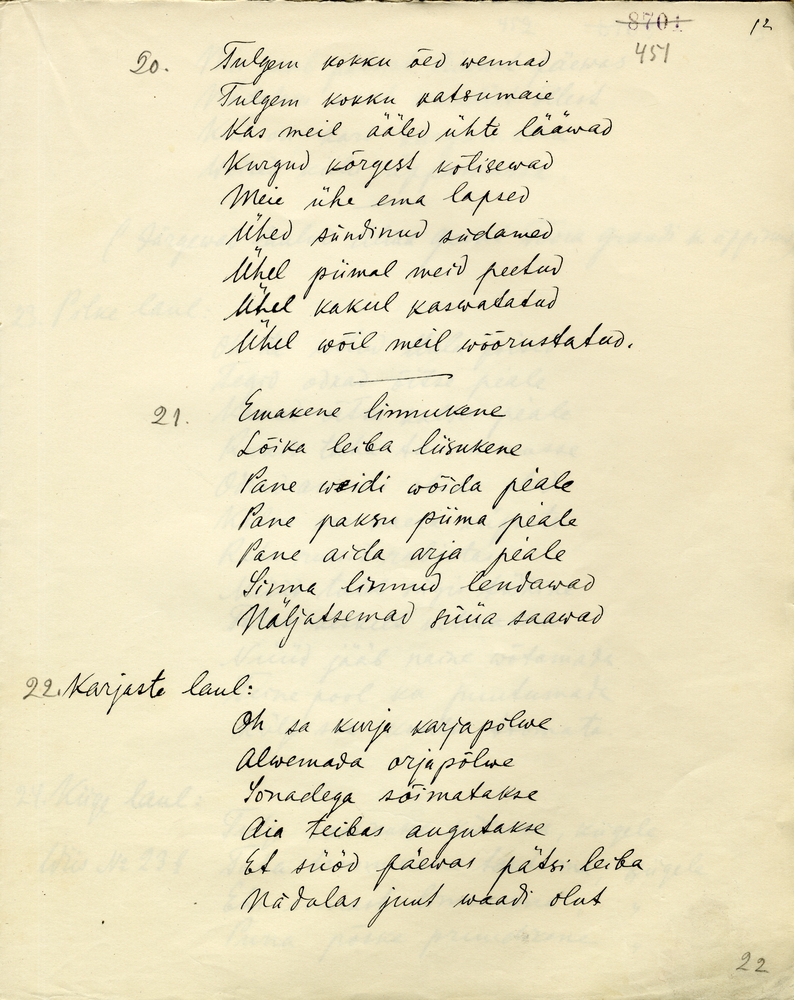 8701
12
451
20. Tulgem kokku õed wennad
Tulgem kokku katsumaie
Kas meil ääled ühte lääwad
Kurgud kõrgest kõlisewad
Meie ühe ema lapsed
Ühed sündinud südamed
Ühel piimal meid peetud
Ühel kakul kaswatatud
Ühel wõil meil wõõrustatud.
21. Emakene linnukene
Lõika leiba liisukene
Pane weidi wõida péale
Pane paksu piima péale
Pane aida arja péale
Sinna linnud lendawad
Näljatsemad süüa saawad
22. Karjaste laul:
Oh sa kurja karjapõlwe
Alwemada orjapõlwe
Sõnadega sõimatakse
Aia teibas augutakse
Et sööd päewas pätsi leiba
Nädalas juut waadi olut
22